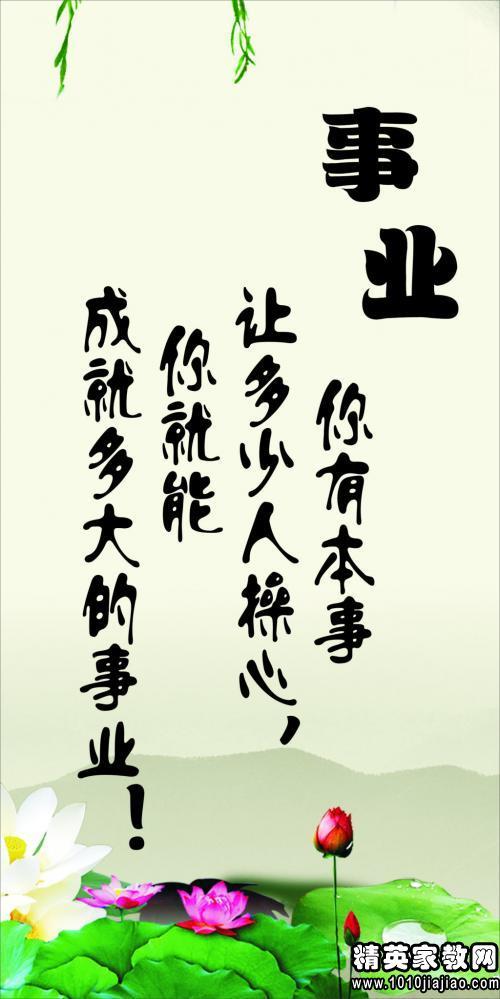 事业
你有本事
让多少人操心，
你就能
成就多大的事业！
精英家教网
www.1010jiajiao.com